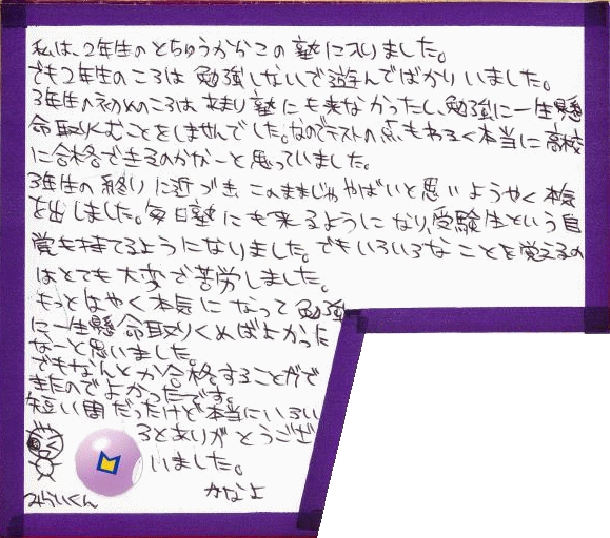 私は、2年生のとちゅうからこの塾に入りました。
でも2年生のころは勉強しないで遊んでばかりいました。
3年生の初めのころはあまり塾にも来なかったし、勉強に一生懸
命取りくむことをしませんでした。なのでテストの点もわるく本当に高校
に合格できるのかなーと思っていました。
3年生の終りに近づき、このままじゃやばいと思いようやく本気
を出しました。毎日塾にも来るようになり、受験生という自
覚も持てるようになりました。でもいろいろなことを覚えるの
はとても大変で苦労しました。
もっとはやく本気になって勉強
に一生懸命取りくめばよかった
なーと思いました。
でもなんとか合格することがで
きたのでよかったです。
短い間だったけど本当にいろい
ろとありがとうござ
いました。
みらいくん
かなよ